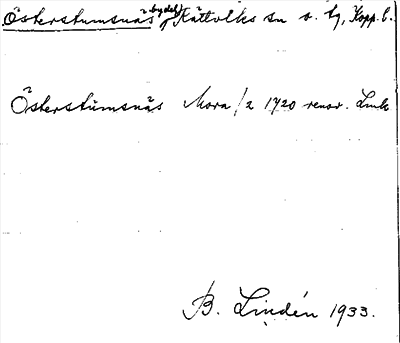 Österstumsnäs bydel, Rättviks sn o. tg, Kopp. l.
Österstumsnäs Mora 1/2 1720 renov. Lmk
B. Lindén 1933.